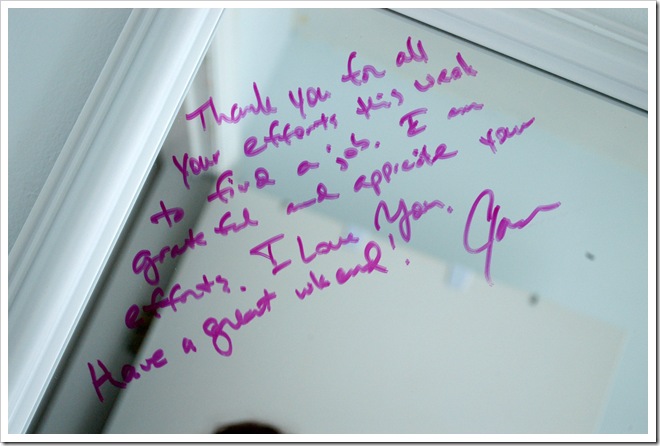 Thank you for all
your efforts this week
to find a job. I am
grateful and appriciate your
efforts. I Love You.
Have a great wkend!